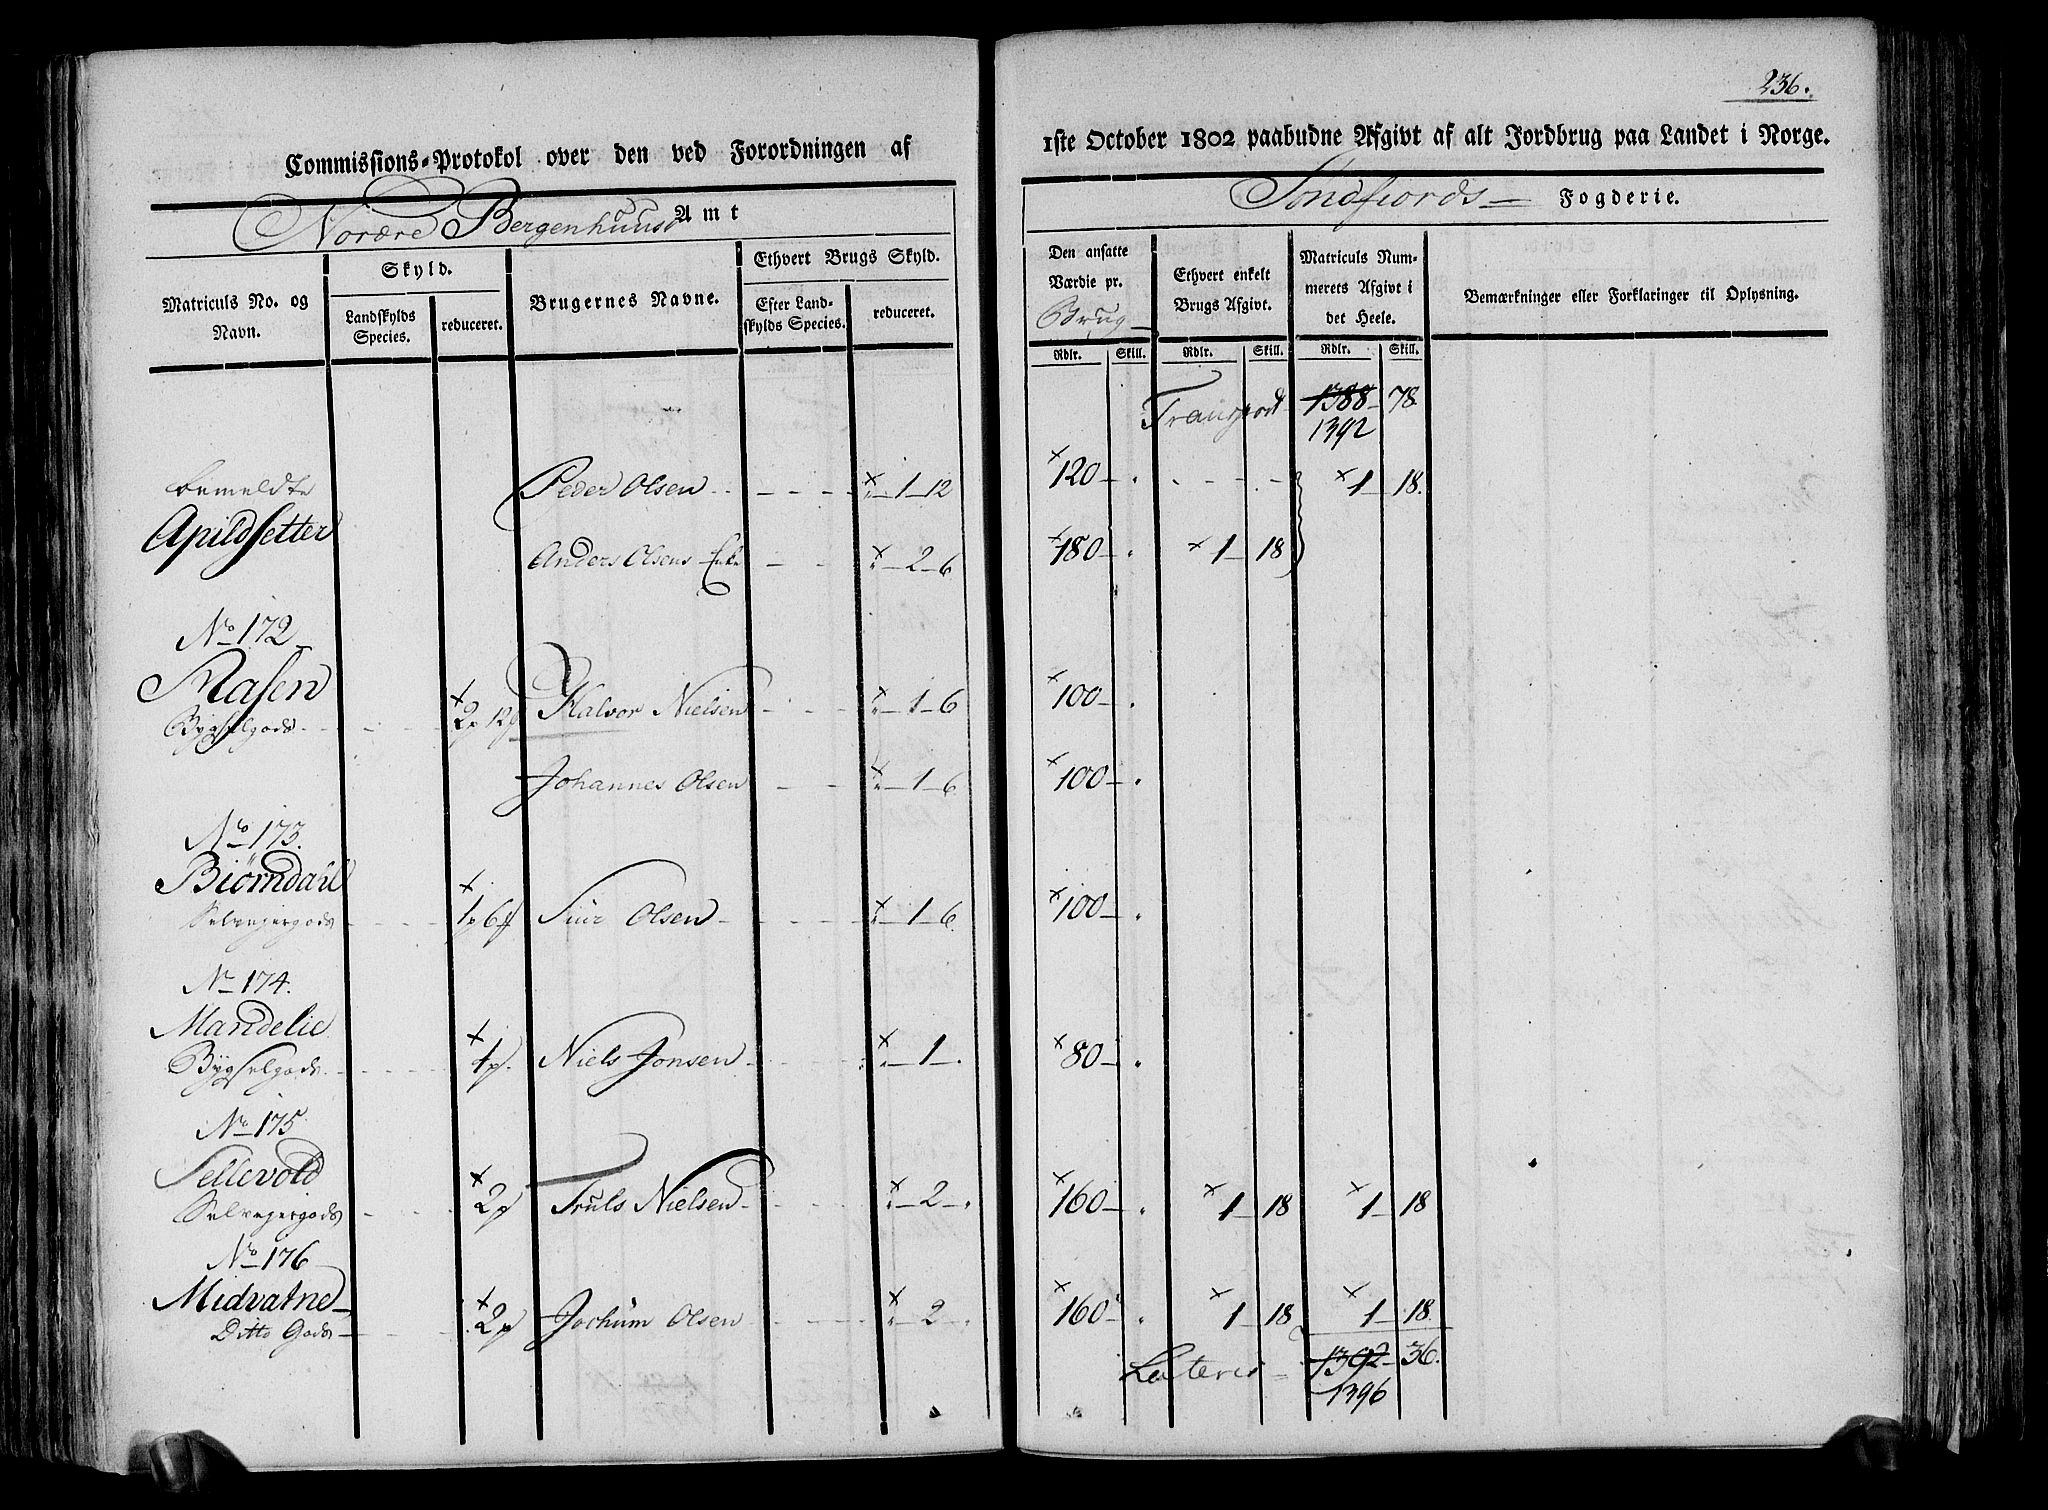 236.
Commissions-Protokol over den ved Forordningen af
1ste October 1802 paabudne Afgivt af alt Jordbrug paa Landet i Norge.
Nordre Bergenhuuus Amt
Søndfiords Fogderie.
Matriculs No. og Navn.
Skyld.
Landskylds Species.
reduceret.
Brugernes Navne.
Ethvert Brugs Skyld.
Efter Landskylds Species.
reduceret.
Den ansatte Værdie pr. Brug
Ethvert enkelt Brugs Afgivt.
Matriculs Nummerets Afgivt i det Heele.
Bemærkninger eller Forklaringer til Oplysning.
Rdlr. Skill. Rdlr. Skill. Rdlr. Skill.
Transport 1388 78.
1392
bemeldte Peder Olsen 1 12 120 1 18.
Apildsetter
Anders Olsens Enke 2 6 180 1 18
No 172
Aasen
Bygselgods 2p 12 Halvor Nielsen 1 6 100
Johannes Olsen 1 6 100
No 173.
Biørndal
Selvejergods 1p 6 Siur Olsen 1 6. 100
No 174.
Mandelie
Bygselgods 1p. Niels Jonsen 1 80
No 175
Sellevold
Selvejergods 2p Truls Nielsen 2 160 1 18 1 18
No 176
Midvatne
Ditto Gods 2p Jochum Olsen 2 160 1 18 1 18.
Lateris 1392 36.
1396